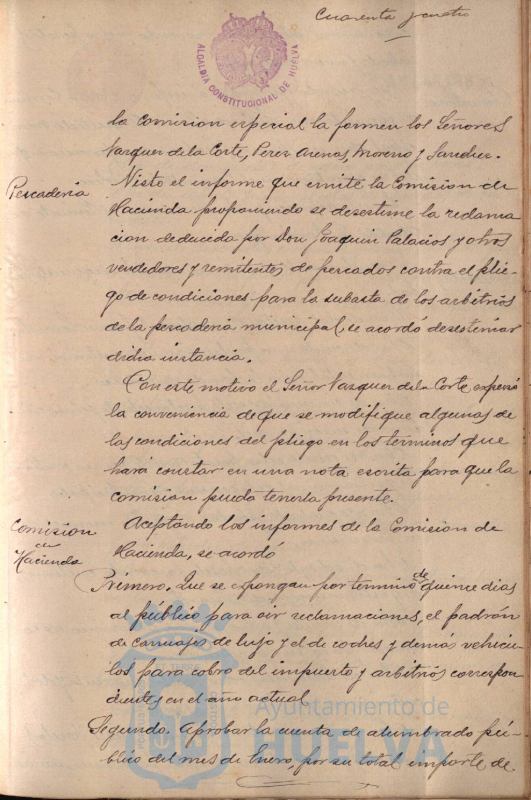 Cuarenta y cuatro
ALCALDIA CONSTITUCIONAL DE HUELVA
la Comision especial la formen los Señores
Vazquez de la Corte, Perez Arenas, Moreno y Sanchez.
Pescaderia
Visto el informe que emite la Comision de
Hacienda proponiendo se desestime la reclama
cion deducida por Don Joaquin Palacios y otros
vendedores y remitentes de pescados contra el plie
go de condiciones para la subasta de los arbitrios
de la pescaderia municipal, se acordó desestimar
dicha instancia.
Con este motivo el Señor Vazquez de la Corte expresó
la conveniencia de que se modifique algunas de
las condiciones del pliego en los terminos que
hará constar en una nota escrita para que la
comision pueda tenerla presente.
Comision
de
Hacienda
Aceptando los informes de la Comision de
Hacienda, se acordó
Primero. Que se expongan por termino de quince dias
al público para oir reclamaciones, el padrón
de carruajes de lujo y el de coches y demás vehicu
los para cobro del impuesto y arbitrios correspon
dientes en el año actual
Segundo. Aprobar la cuenta de alumbrado pú-
blico del mes de Enero, por su total importe de
Ayuntamiento de
HUELVA